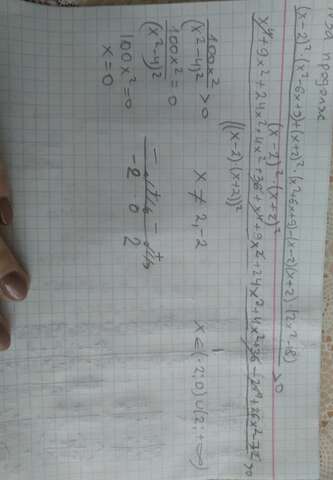 за продолж
(x-2)²·(x²-6x+9)+(x+2)²·(x²+6x+9)-(x-2)(x+2)·(2x²-18)
(x-2)²·(x+2)²
>0
x⁴+9x²+24x²+4x²+36+x⁴+9x²+24x²+4x²+36-(2x⁴+26x²-72)
((x-2)(x+2))²
>0
100x²
(x²-4)²
>0
x ≠ 2,-2
100x²
(x²-4)²
=0
100x²=0
x=0
-2 0 2
x∈(-2;0)∪(2;+∞)